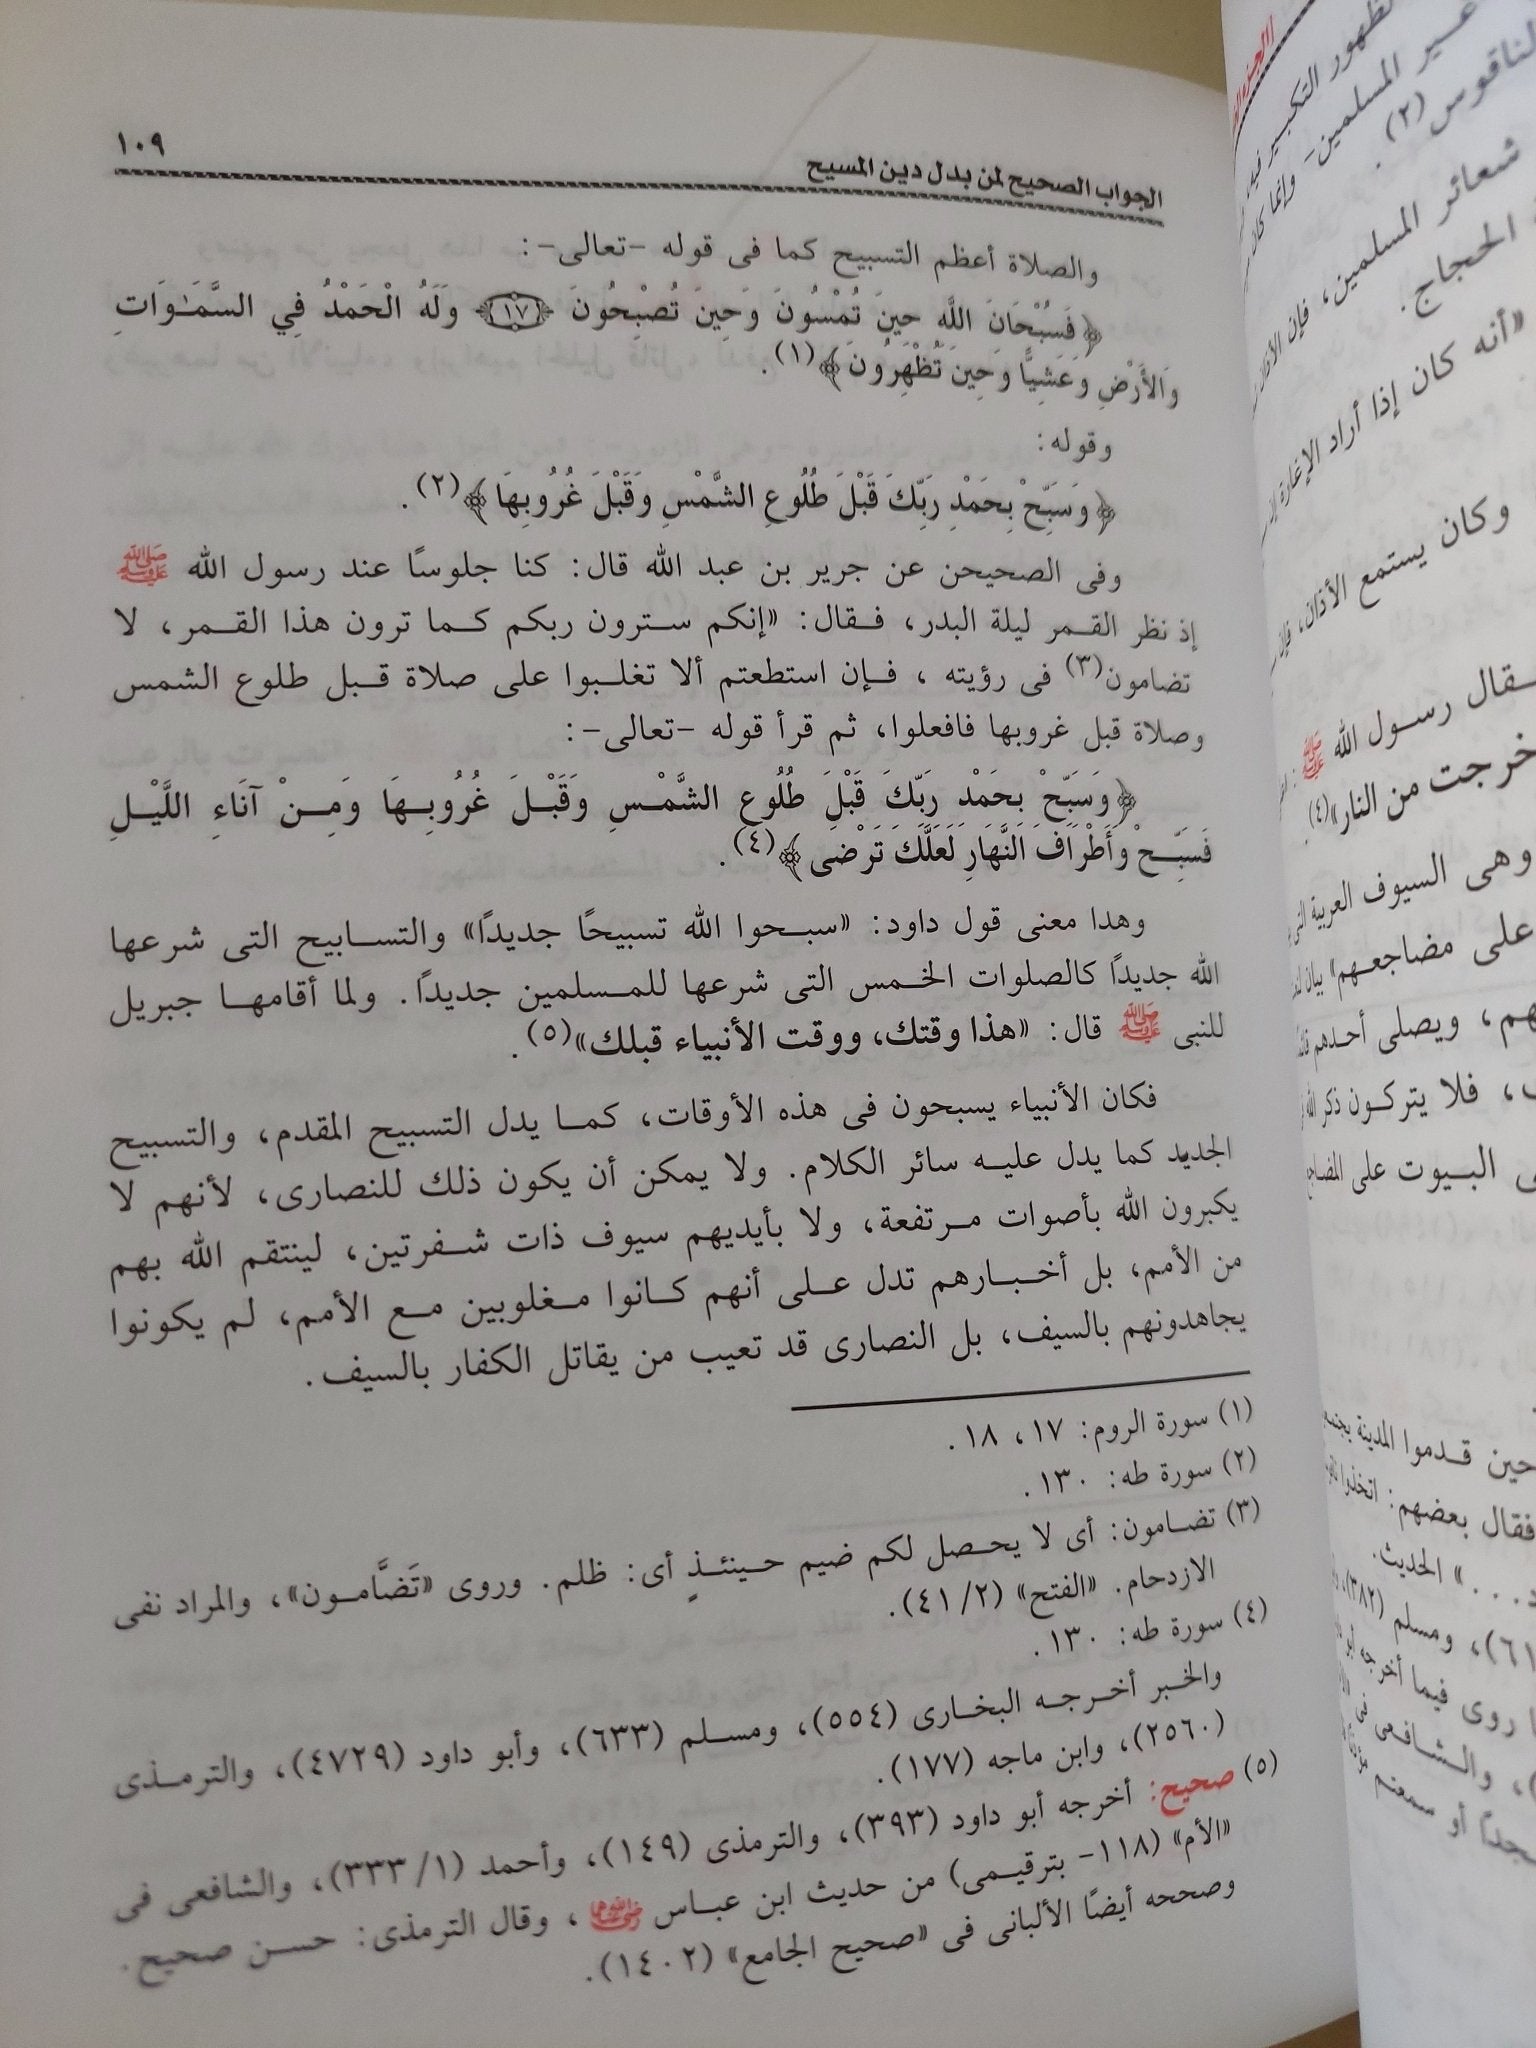 الجواب الصحيح لمن بدل دين المسيح
١٠٩
والصلاة أعظم التسبيح كما فى قوله -تعالى-:
﴿فَسُبْحَانَ اللَّهِ حِينَ تُمْسُونَ وَحِينَ تُصْبِحُونَ ﴿١٧﴾ وَلَهُ الْحَمْدُ فِي السَّمَٰوَاتِ
وَالأَرْضِ وَعَشِيًّا وَحِينَ تُظْهِرُونَ﴾(١).
وقوله:
﴿وَسَبِّحْ بِحَمْدِ رَبِّكَ قَبْلَ طُلُوعِ الشَّمْسِ وَقَبْلَ غُرُوبِهَا﴾(٢).
وفى الصحيحن عن جرير بن عبد الله قال: كنا جلوسًا عند رسول الله ﷺ
إذ نظر القمر ليلة البدر، فقال: «إنكم سترون ربكم كما ترون هذا القمر، لا
تضامون(٣) فى رؤيته ، فإن استطعتم ألا تغلبوا على صلاة قبل طلوع الشمس
وصلاة قبل غروبها فافعلوا، ثم قرأ قوله -تعالى-:
﴿وَسَبِّحْ بِحَمْدِ رَبِّكَ قَبْلَ طُلُوعِ الشَّمْسِ وَقَبْلَ غُرُوبِهَا وَمِنْ آنَاءِ اللَّيْلِ
فَسَبِّحْ وَأَطْرَافَ النَّهَارِ لَعَلَّكَ تَرْضَى﴾(٤).
وهذا معنى قول داود: «سبحوا الله تسبيحًا جديدًا» والتسابيح التى شرعها
الله جديدًا كالصلوات الخمس التى شرعها للمسلمين جديدًا. ولما أقامها جبريل
للنبى ﷺ قال: «هذا وقتك، ووقت الأنبياء قبلك»(٥).
فكان الأنبياء يسبحون فى هذه الأوقات، كما يدل التسبيح المقدم، والتسبيح
الجديد كما يدل عليه سائر الكلام. ولا يمكن أن يكون ذلك للنصارى، لأنهم لا
يكبرون الله بأصوات مرتفعة، ولا بأيديهم سيوف ذات شفرتين، لينتقم الله بهم
من الأمم، بل أخبارهم تدل على أنهم كانوا مغلوبين مع الأمم، لم يكونوا
يجاهدونهم بالسيف، بل النصارى قد تعيب من يقاتل الكفار بالسيف.
(١) سورة الروم: ١٧، ١٨.
(٢) سورة طه: ١٣٠.
(٣) تضامون: أى لا يحصل لكم ضيم حينئذٍ أى: ظلم. وروى «تَضَّامون»، والمراد نفى
الازدحام. «الفتح» (٤١/٢).
(٤) سورة طه: ١٣٠.
والخبر أخرجه البخارى (٥٥٤)، ومسلم (٦٣٣)، وأبو داود (٤٧٢٩)، والترمذى
(٢٥٦٠)، وابن ماجه (١٧٧).
(٥) صحيح: أخرجه أبو داود (٣٩٣)، والترمذى (١٤٩)، وأحمد (٣٣٣/١)، والشافعى فى
«الأم» (١١٨- بترقيمى) من حديث ابن عباس رضي الله عنهما ، وقال الترمذى: حسن صحيح.
وصححه أيضًا الألبانى فى «صحيح الجامع» (١٤٠٢).
ظهور التكبير
المسلمين- وإنما كان
الناقوس (٢).
شعائر المسلمين، فإن الأذان
الحجاج.
«أنه كان إذا أراد الإغارة
وكان يستمع الأذان، فإن
فقال رسول الله ﷺ :
خرجت من النار»(٤).
وهى السيوف العربية التى
على مضاجعهم» بيان
ويصلى أحدهم
فلا يتركون ذكر الله
البيوت على
حين قدموا المدينة
فقال بعضهم: اتخذوا
الحديث.
ومسلم (٣٨٢)
روى فيما أخرجه أبو
والشافعى فى
أو سمعتم